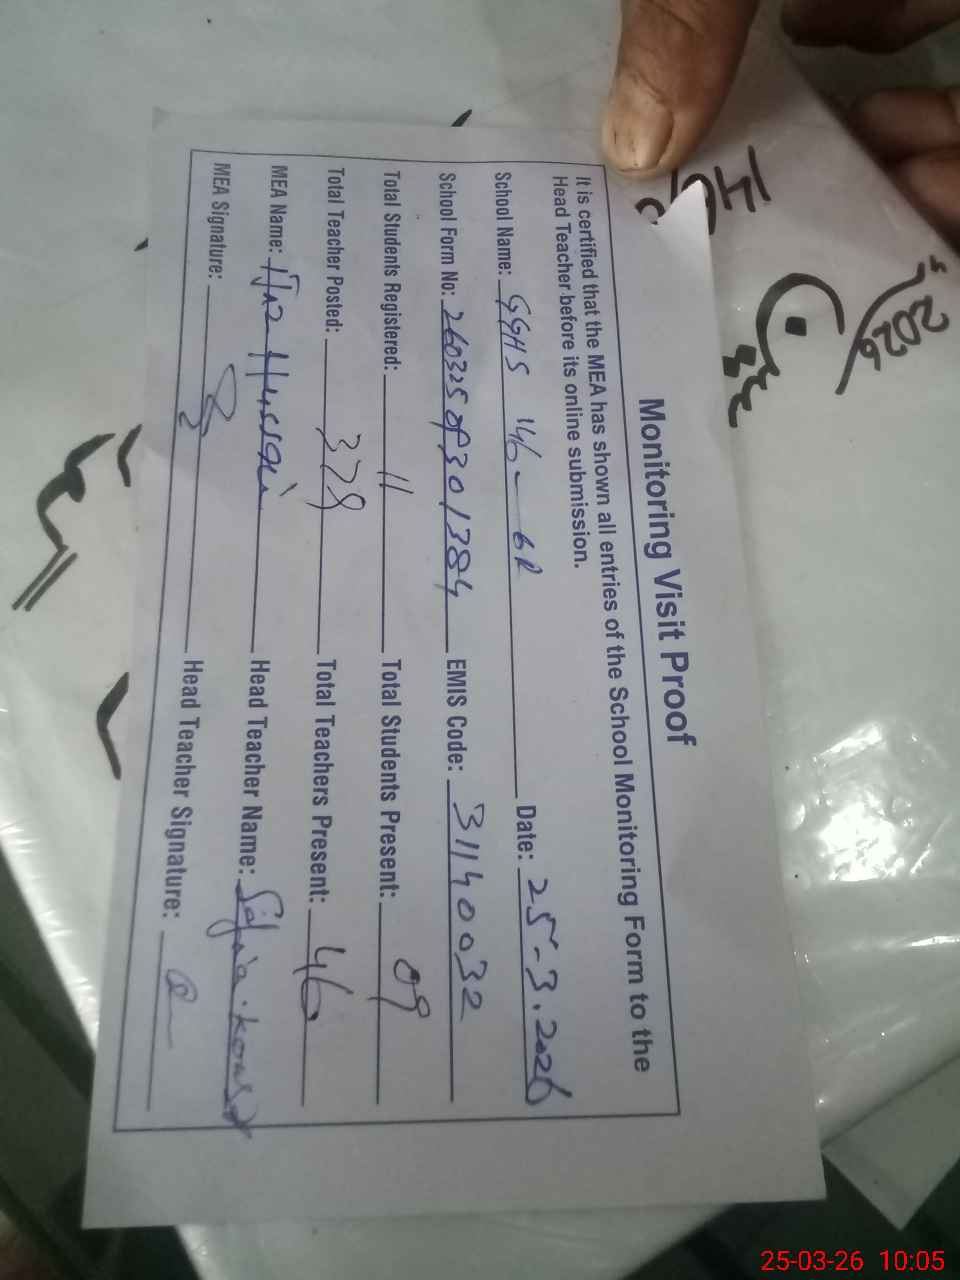 Monitoring Visit Proof
It is certified that the MEA has shown all entries of the School Monitoring Form to the
Head Teacher before its online submission.
School Name: GGHS 146-6R Date: 25-3.2026
School Form No: 260325 301384 EMIS Code: 31140032
Total Students Registered: 11 Total Students Present: 09
Total Teacher Posted: 378 Total Teachers Present: 46
MEA Name: Hussain Head Teacher Name:
MEA Signature: Head Teacher Signature:
2026
25-03-26 10:05